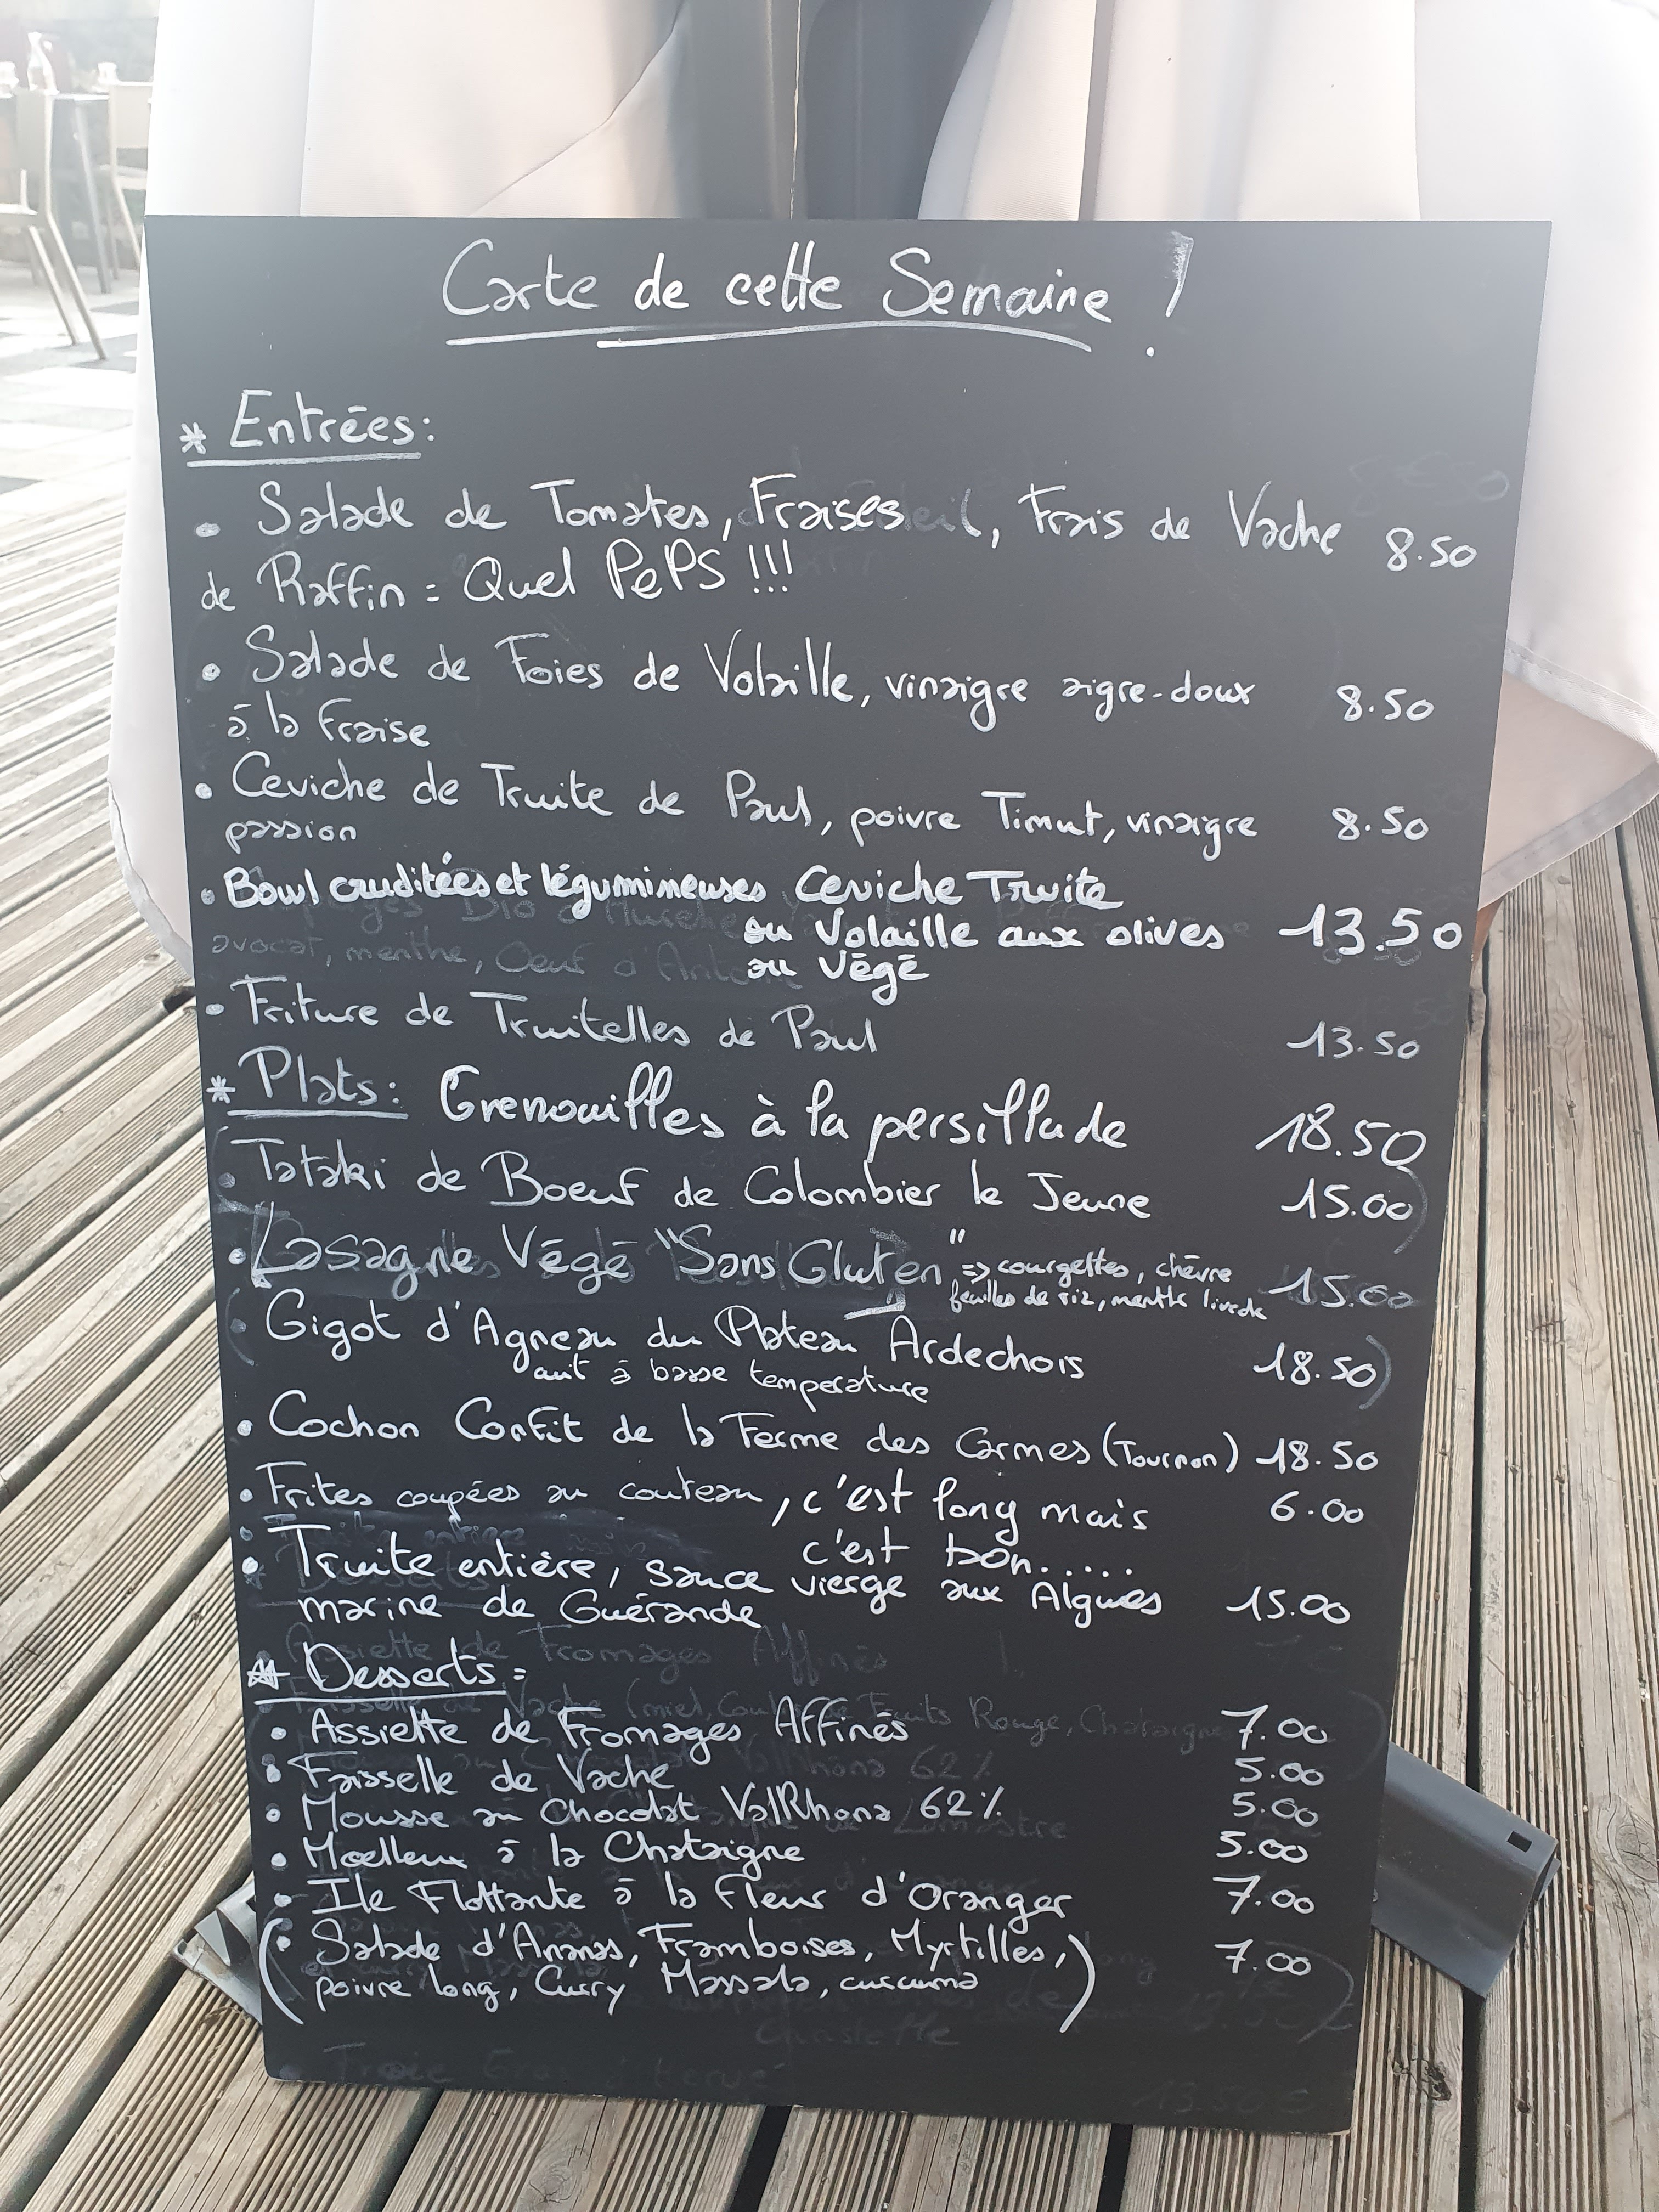 Carte de cette Semaine !
* Entrées:
• Salade de Tomates, Fraises, Frais de Vache 8.50
de Raffin = Quel PePS !!!
• Salade de Foies de Volaille, vinaigre aigre-doux 8.50
à la fraise
• Ceviche de Truite de Paul, poivre Timut, vinaigre 8.50
passion
• Bowl cruditées et légumineuses Ceviche Truite
ou Volaille aux olives 13.50
avocat, menthe, Oeuf
ou Végé
• Friture de Truitelles de Paul 13.50
* Plats: Grenouilles à la persillade 18.50
(• Tataki de Boeuf de Colombier le Jeune 15.00)
• Lasagne Végé "Sans Gluten" => courgettes, chèvre 15.00
feuilles de riz, menthe
(• Gigot d'Agneau du Plateau Ardechois 18.50)
cuit à basse temperature
• Cochon Confit de la Ferme des Carmes (Tournon) 18.50
• Frites coupées au couteau, c'est long mais 6.00
c'est bon.....
• Truite entière, sauce vierge aux Algues 15.00
marine de Guérande
Assiette de Fromages Affinés
* Desserts =
Vache (miel, Fruits Rouge, Chataigne
• Assiette de Fromages Affinés 7.00
• Faisselle de Vache 5.00
62%
• Mousse au Chocolat ValRhona 62% 5.00
• Moelleux à la Chataigne 5.00
• Ile Flottante à la fleur d'Oranger 7.00
(• Salade d'Ananas, Framboises, Myrtilles, 7.00
poivre long, Curry Massala, curcuma)
13.50€